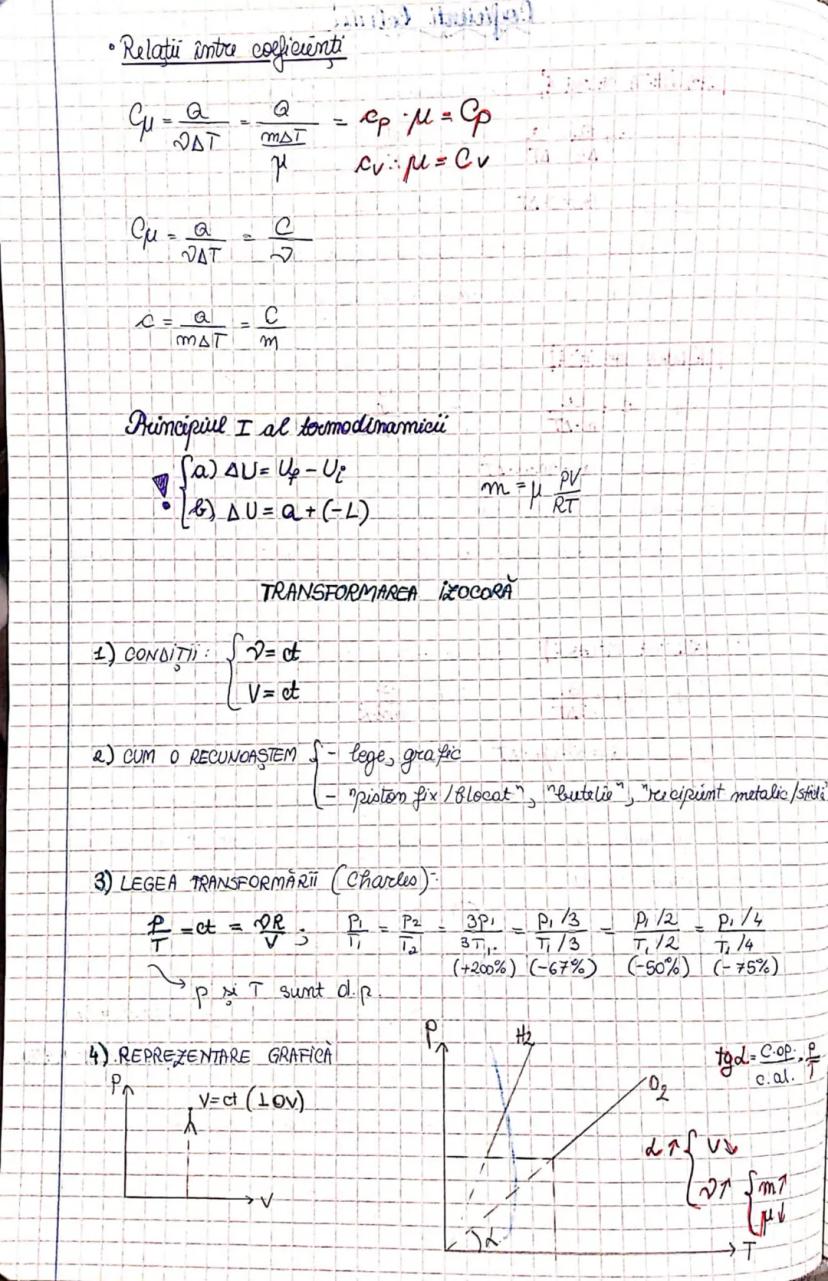 • Relații între coeficienți
Cμ = Q/νΔT = Q/(mΔT/μ) = cp · μ = Cp
cv · μ = Cv
Cμ = Q/νΔT = C/ν
c = Q/mΔT = C/m
Principiul I al termodinamicii
! { a) ΔU = Uf - Ui
b) ΔU = Q + (-L)
m = μ PV/RT
TRANSFORMAREA IZOCORĂ
1) CONDIȚII: { ν = ct
V = ct
2) CUM O RECUNOAȘTEM { - lege, grafic
- "piston fix/blocat", "butelie", "recipient metalic/sticlă
3) LEGEA TRANSFORMĂRII (Charles):
P/T = ct = νR/V ; P1/T1 = P2/T2 = 3P1/3T1 = P1/3 / T1/3 = P1/2 / T1/2 = P1/4 / T1/4
(+200%) (-67%) (-50%) (-75%)
p și T sunt d.p.
4) REPREZENTARE GRAFICĂ
P
V=ct (⊥OV)
V
P
H2
O2
α
T
tgα = c.op./c.al. = P/T
α↑ { V↓
ν↑ { m↑
μ↓